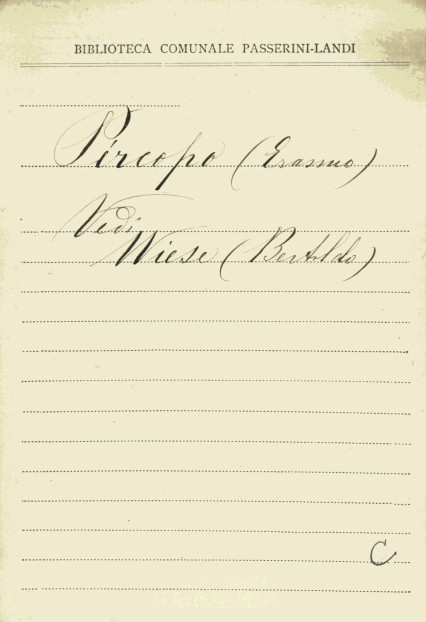 BIBLIOTECA COMUNALE PASSERINI-LANDI
Pircopo (Erasmo)
Vedi
Wiese (Bertoldo)
C